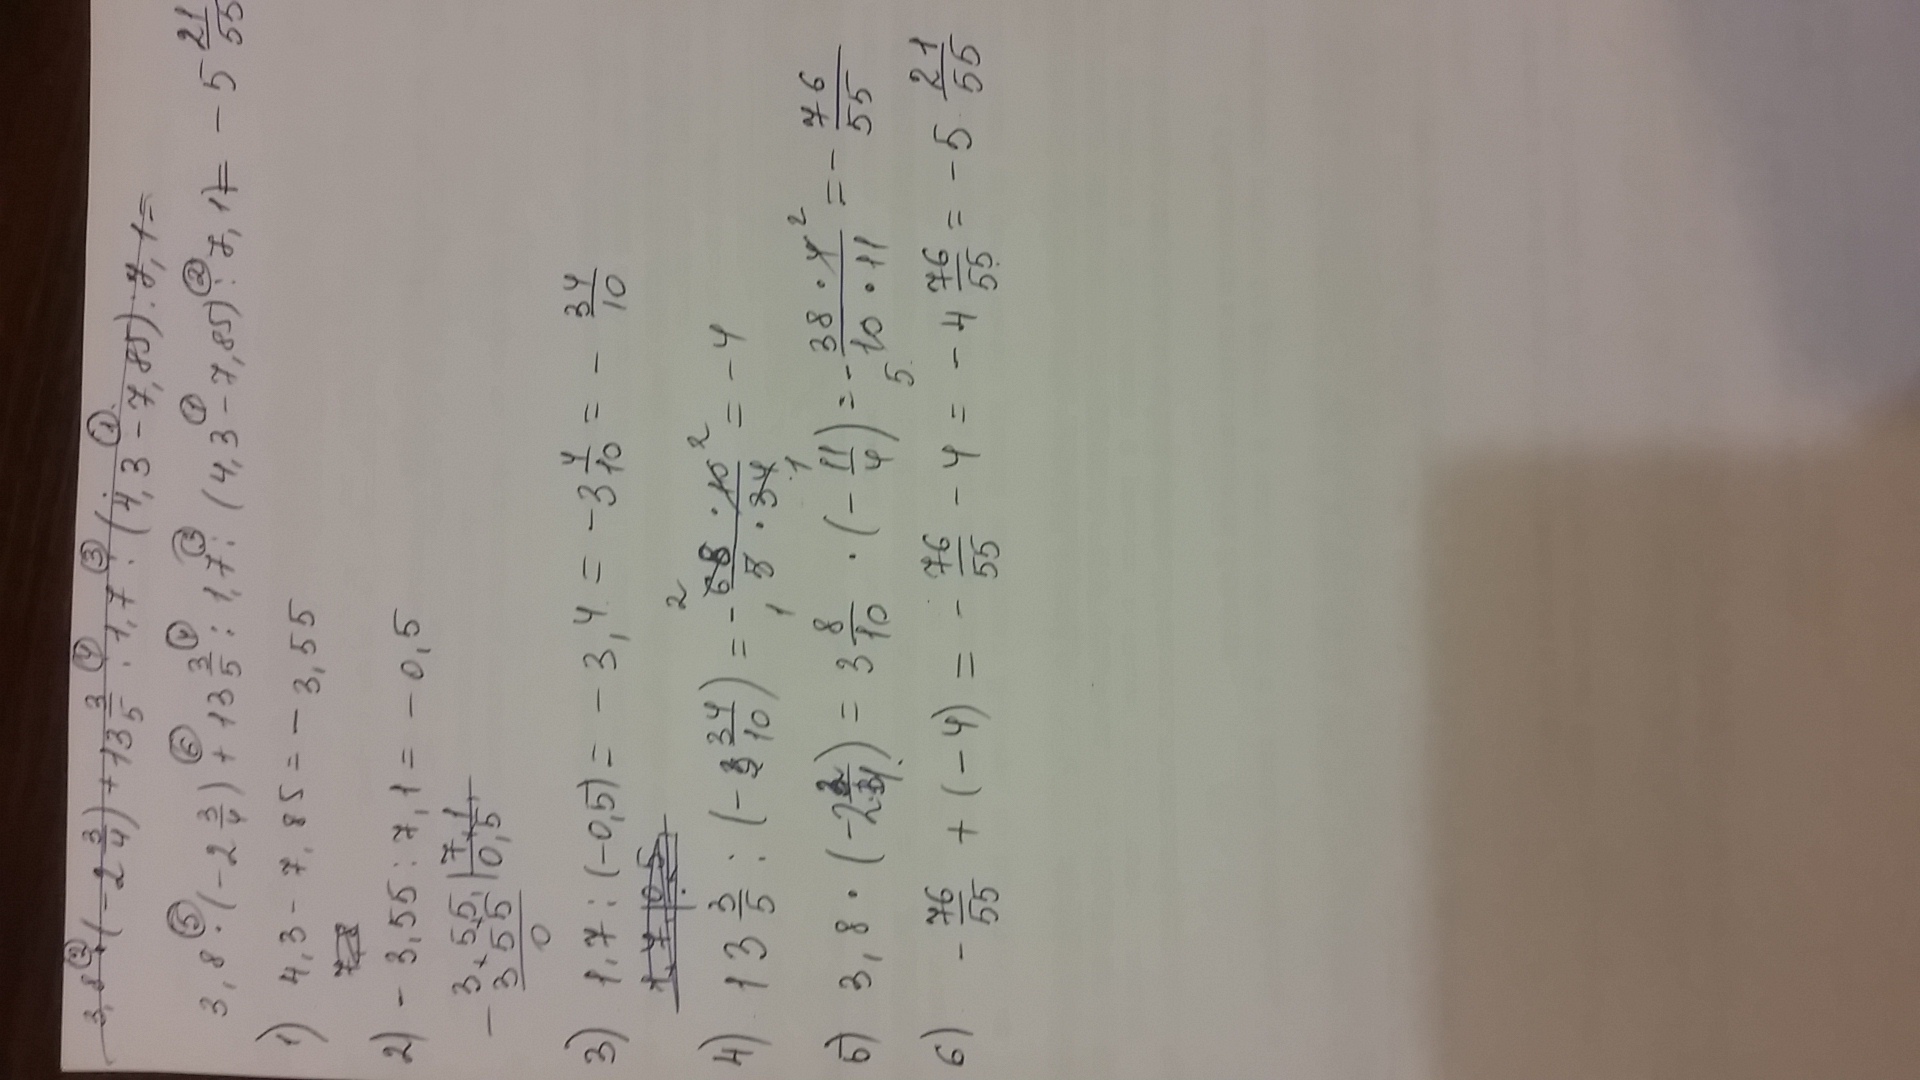 3,8 · (-2 3/4) + 13 3/5 · 1,7 : (4,3 - 7,85) : 7,1 =
3,8 · (-2 3/4) + 13 3/5 : 1,7 : (4,3 - 7,85) : 7,1 = - 5 21/55
1) 4,3 - 7,85 = - 3,55
2) - 3,55 : 7,1 = - 0,5
- 3,5,5, | 7,1,
3 5 5 | 0,5
0
3) 1,7 : (-0,5) = - 3,4 = - 3 4/10 = - 34/10
4) 13 3/5 : (- 34/10) = - 68 · 10 / 5 · 34 = - 4
2 2 1 1
5) 3,8 · (-2 3/4) = 3 8/10 · (- 11/4) = - 38 · 4 / 10 · 11 = - 76/55
2 5
6) - 76/55 + (- 4) = - 76/55 - 4 = - 4 76/55 = - 5 21/55